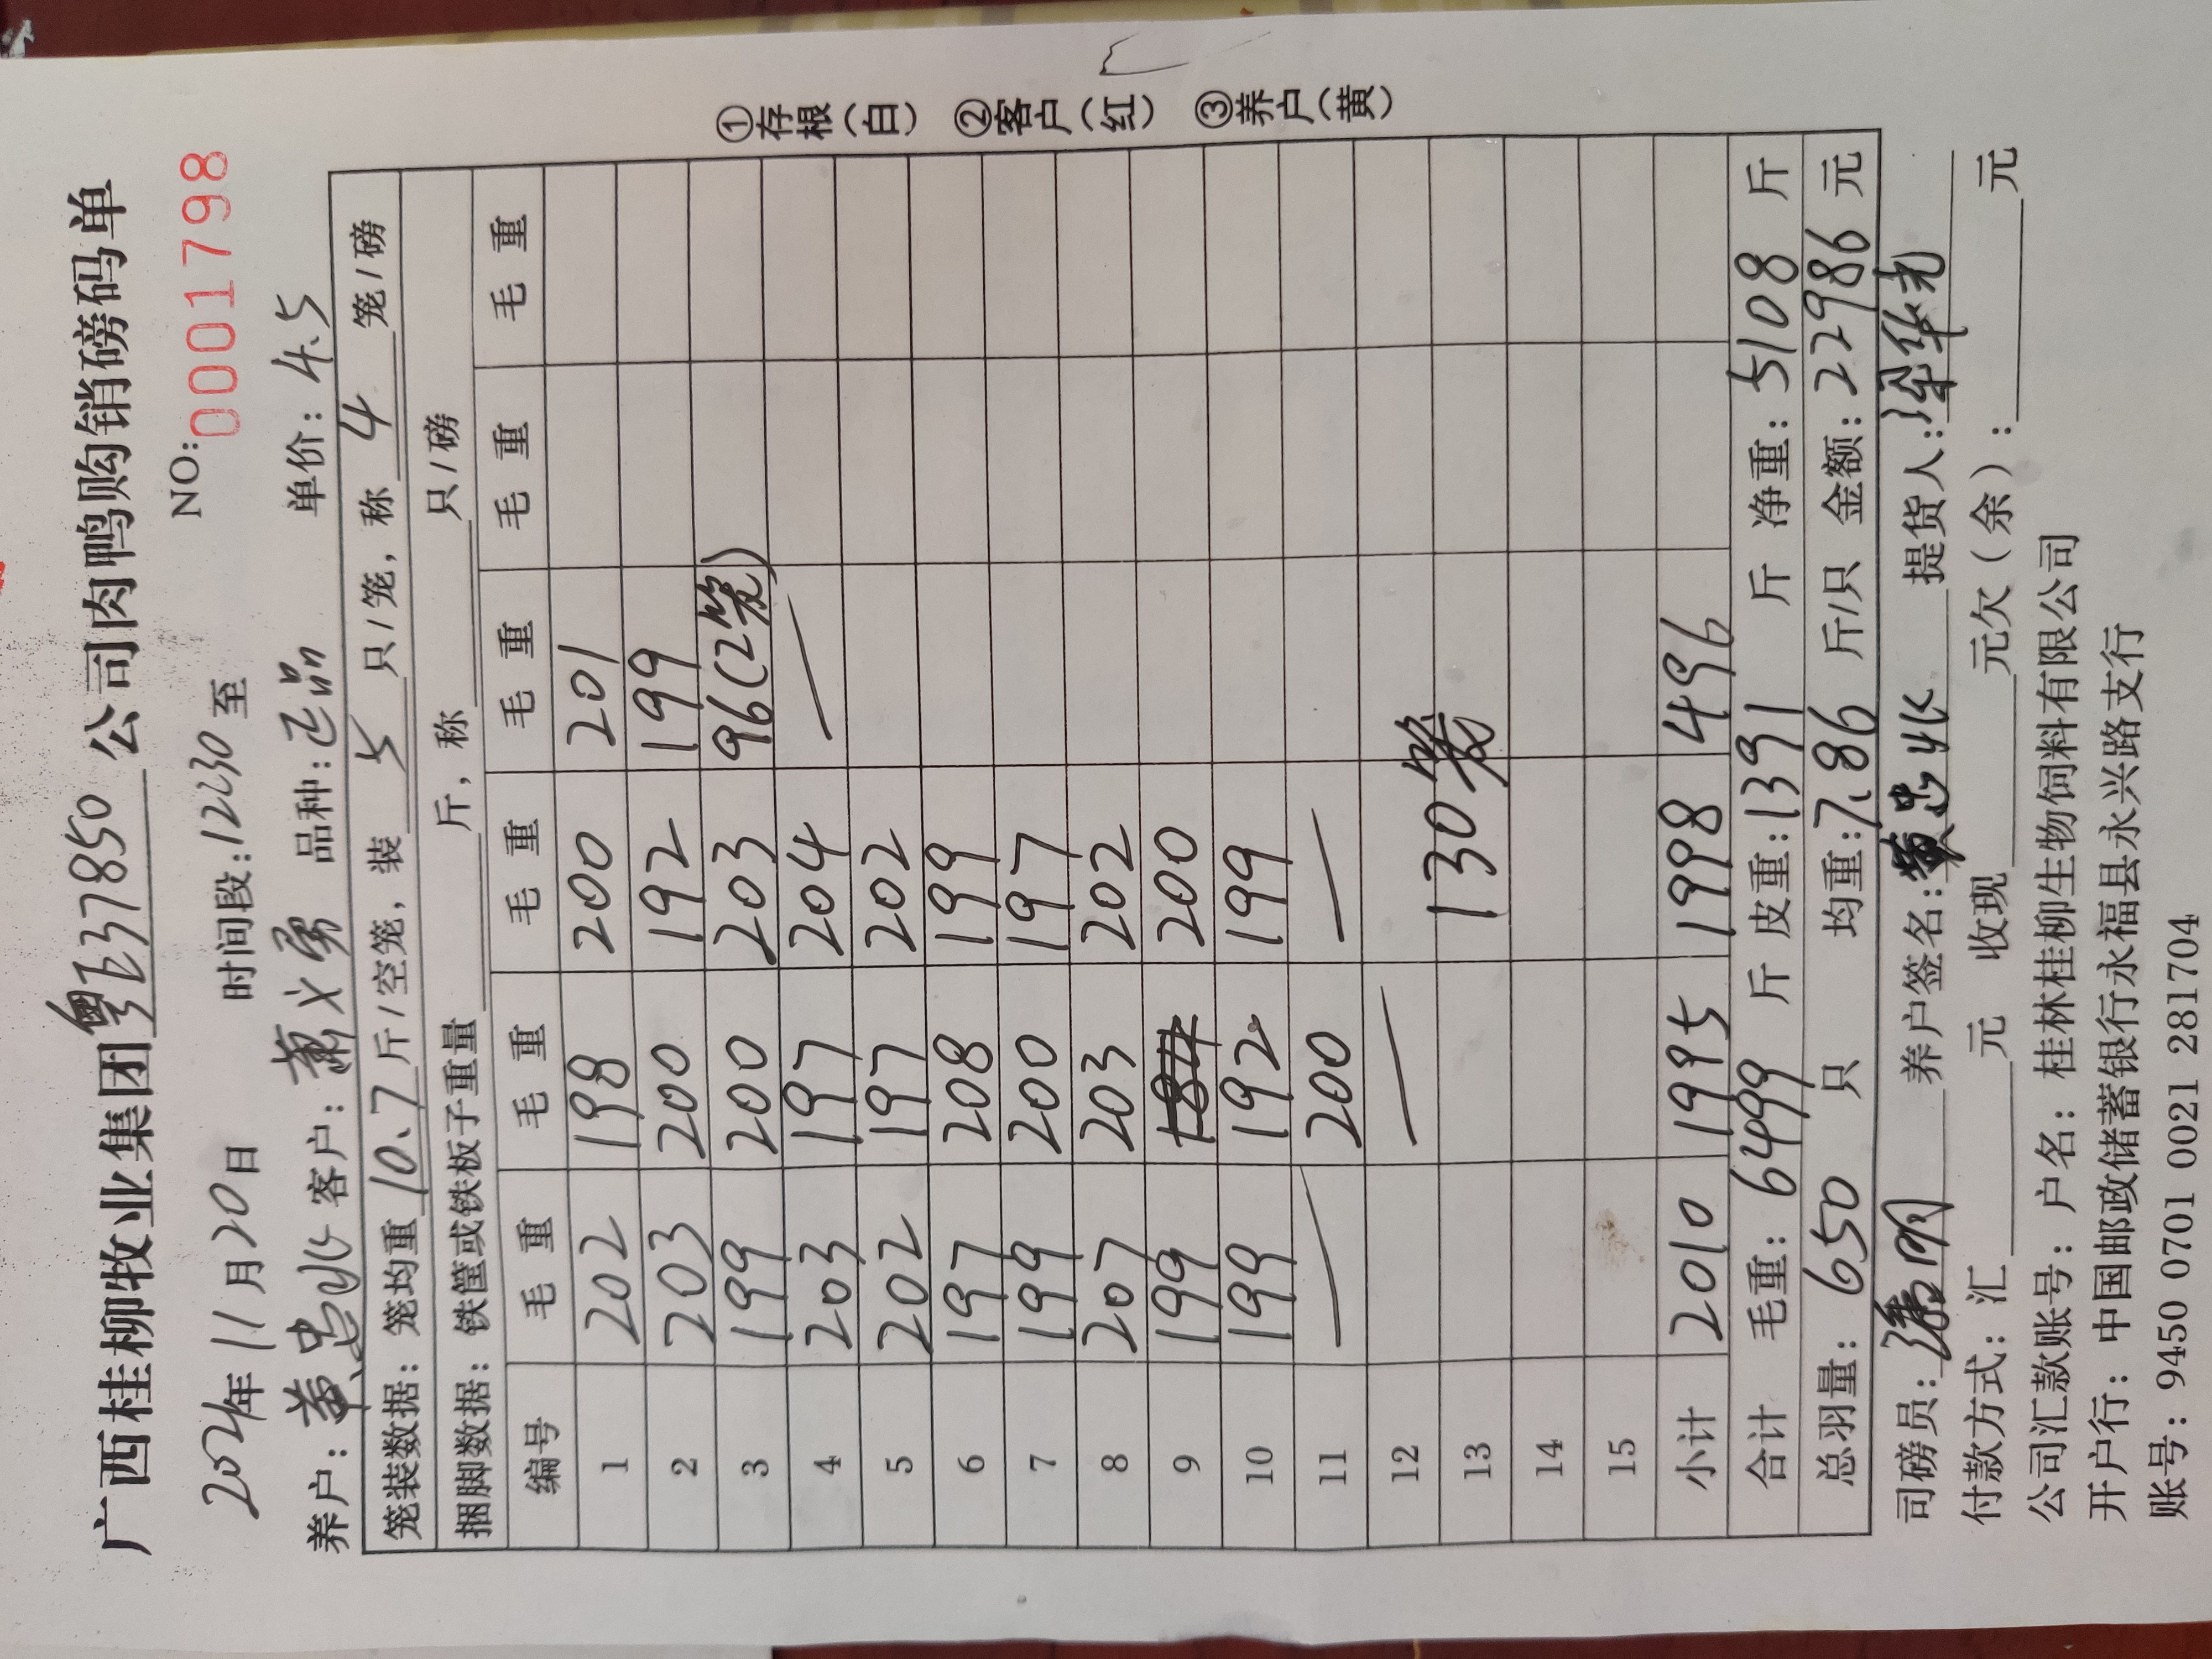 广西桂柳牧业集团粤E37850公司肉鸭购销磅码单
NO: 0001798
2024年11月20日 时间段:1230至
养户: 黄忠兆 客户: 萧义勇 品种:正品 单价: 4.5
笼装数据: 笼均重 10.7 斤/空笼, 装 5 只/笼, 称 4 笼/磅
捆脚数据: 铁筐或铁板子重量 斤, 称 只/磅
编号 毛重 毛重 毛重 毛重 毛重 毛重
1 202 198 200 201
2 203 200 192 199
3 199 200 203 96(2笼)
4 203 197 204 —
5 202 197 202
6 197 208 199
7 199 200 197
8 207 203 202
9 199 200
10 199 192 199
11 — 200 —
12 —
13 130笼
14
15
小计 2010 1995 1998 496
合计 毛重: 6499 斤 皮重:1391 斤 净重: 5108 斤
总羽量: 650 只 均重:7.86 斤/只 金额: 22986 元
司磅员: 养户签名:黄忠兆 提货人:
付款方式: 汇 元 收现 元欠(余): 元
公司汇款账号: 户名: 桂林桂柳生物饲料有限公司
开户行: 中国邮政储蓄银行永福县永兴路支行
账号: 9450 0701 0021 281704
①存根(白) ②客户(红) ③养户(黄)